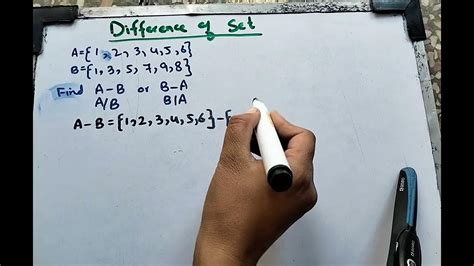 Difference of Set
A={1,2,3,4,5,6}
B={1,3,5,7,9,8}
Find A-B or B-A
A/B B/A
A-B={1,2,3,4,5,6}-{